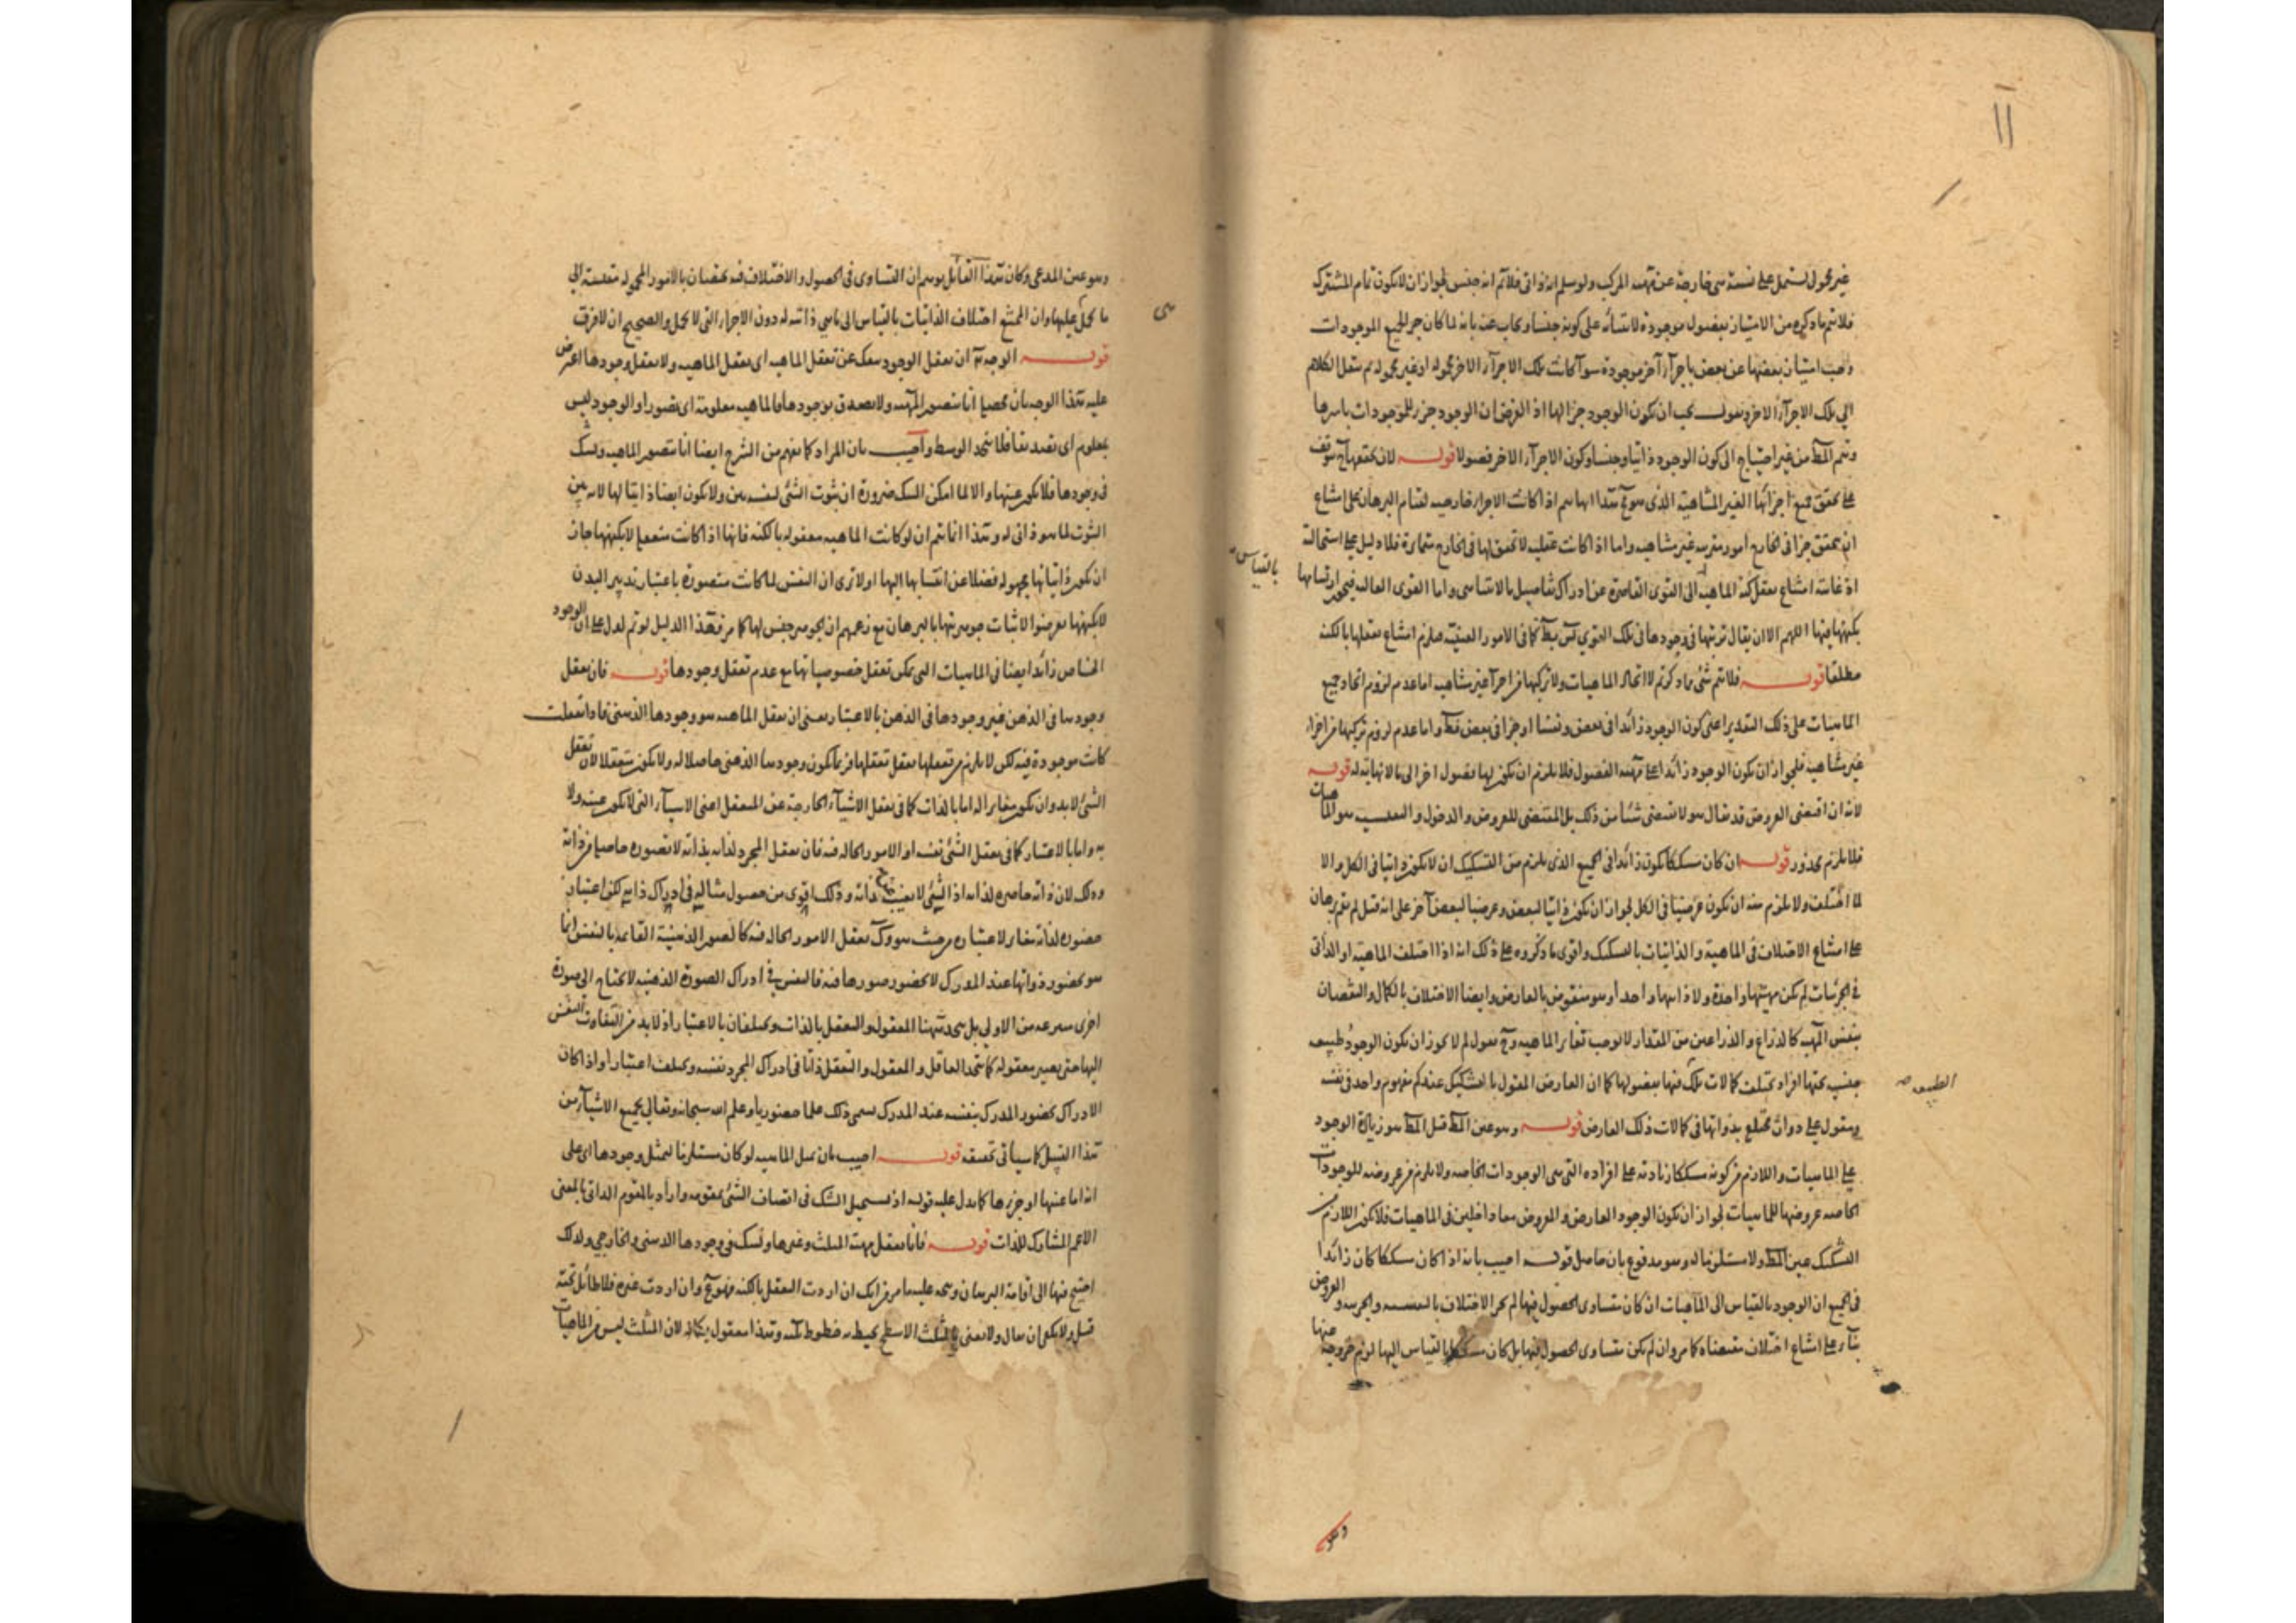 ١١
غير محمول لشتمل على نسبة شىء خارجة عن مهية المركب ولو سلم انه ذاتى فلا تم انه جنس لجواز ان لا يكون تمام المشترك
فلا تم ما ذكره من الامتياز بفصول موجودة لابتنائه على كونه جنسا ويجاب عنه بانه لما كان جزء لجميع الموجودات
وجب امتياز بعضها عن بعض باجزاء آخر موجودة سواء كانت تلك الاجزاء الاخر محمولة او غير محمولة ثم ننقل الكلام
الى تلك الاجزاء الاخر ونقول يجب ان يكون الوجود جزء لها اذ الفرض ان الوجود جزء للموجودات باسرها
ويتم المط من غير احتياج الى كون الوجود ذاتيا وجنسا وكون الاجزاء الاخر فصولا قوله لان تحققها ح يتوقف
على تحقق جميع اجزائها الغير المتناهية الذى هو مح هذا انما يتم اذا كانت الاجزاء خارجية لقيام البرهان على امتناع
ان يتحقق جزء فى الخارج امور مترتبة غير متناهية واما اذا كانت عقلية لا تحقق لها فى الخارج متمايزة فلا دليل على استحالته
اذ غايته امتناع تعقل كنه الماهية الى القوى القاصرة عن ادراك تفاصيل ما لا يتناهى واما القوى العالية فيجوز ارتسامها
بالقياس
بكنهها فيها اللهم الا ان يقال ترتبها فى وجودها فى تلك القوى كما فى الامور العينية فيلزم امتناع تعقلها بالكنه
مطلقا قوله فلا يتم شىء مما ذكرتم لا اتحاد الماهيات ولا تركبها من اجزاء غير متناهية اما عدم لزوم اتحاد جميع
الماهيات على ذلك التقدير اعنى كون الوجود زائدا فى بعض ونفسا او جزء فى بعض فقط واما عدم لزوم تركبها من اجزاء
غير متناهية فلجواز ان يكون الوجود زائدا على مهية الفصول فلا يلزم ان يكون لها فصول اخر الى ما لا نهاية له قوله
لانه ان اقتضى العروض قد يقال هو لا يقتضى شيئا من ذلك بل المقتضى للعروض والدخول والنفسية هو الماهيات
فلا يلزم محذور قوله ان كان مشككا يكون زائدا فى الجميع الذى يلزم من التشكيك ان لا يكون ذاتيا فى الكل والا
لما اختلفت ولا يلزم منه ان يكون عرضيا فى الكل لجواز ان يكون ذاتيا لبعض وعرضيا لبعض آخر على انه قيل لم يقم برهان
على امتناع الاختلاف فى الماهية والذاتيات بالتشكيك واقوى ما ذكروه على ذلك انه اذا اختلفت الماهية او الذاتى
فى الجزئيات لم تكن مهيتها واحدة ولا ذاتيها واحدا وهو منقوض بالعارض وايضا الاختلاف بالكمال والنقصان
بنفس المهية كالذراع والذراعين من المقدار لا يوجب تغاير الماهية وح نقول لم لا يجوز ان يكون الوجود طبيعة
جنسية تحتها افراد تختلف كمالات تلك فيها بفصولها كما ان العارض المقول بالتشكيك عندكم مفهوم واحد فى نفسه
الطبيعة
ومقول على ذوات تختلف بذواتها فى كمالات ذلك العارض قوله وهو عين المط قيل المط هو زيادة الوجود
على الماهيات واللازم من كونه مشككا زيادته على افراده التى هى الوجودات الخاصة ولا يلزم من عروضه للوجودات
الخاصة عروضها للماهيات لجواز ان يكون الوجود العارض والمعروض معا داخلين فى الماهيات فلا يكون اللازم من
التشكيك عين المط ولا مستلزما له وهو مدفوع بان حاصل قوله اجيب بانه اذا كان مشككا كان زائدا
فى الجميع ان الوجود بالقياس الى الماهيات ان كان متساوى الحصول فيها لم يجز الاختلاف بالنفسية والجزئية والعروض
بناء على امتناع اختلاف مقتضاه كما مر وان لم يكن متساوى الحصول فيها بل كان مشككا بالقياس اليها لزم خروجه عنها
وهو
وهو عين المدعى وكان هذا القائل توهم ان التساوى فى الحصول والاختلاف فيه يختصان بالامور المحمولة مقيسة الى
ما يحمل عليها وان الممتنع اختلاف الذاتيات بالقياس الى ما هى ذاتية له دون الاجزاء التى لا تحمل والصحيح ان لا فرق
قوله الوجه ان تعقل الوجود ينفك عن تعقل الماهية اى تعقل الماهية ولا يعقل وجودها اعترض
عليه هذا الوجه بان محصله انا نتصور المهية ولا نصدق بوجودها فالماهية معلومة اى تصورا والوجود ليس
بمعلوم اى تصديقا فلا يتحد الوسط واجيب بان المراد كما يفهم من الشرح ايضا انا نتصور الماهية ونشك
فى وجودها فلا يكون عينها والا لما امكن الشك ضرورة ان ثبوت الشىء لنفسه بين ولا يكون ايضا ذاتيا لها لانه بين
الثبوت لما هو ذاتى له وهذا انما يتم ان لو كانت الماهية معقولة بالكنه فانها اذا كانت متعقلة لا بكنهها جاز
ان يكون ذاتياتها مجهولة فضلا عن انتسابها اليها اولا ترى ان النفس لما كانت متصورة باعتبار تدبير البدن
لا بكنهها تعرضوا لاثبات جوهريتها بالبرهان مع زعمهم ان الجوهر جنس لها كما مر فهذا الدليل لو تم لدل على ان الوجود
الخاص زائد ايضا فى الماهيات التى يمكن تعقل خصوصياتها مع عدم تعقل وجودها قوله فان تعقل
وجودها فى الذهن غير وجودها فى الذهن بالاعتبار يعنى ان تعقل الماهية هو وجودها الذهنى فاذا تعقلت
كانت موجودة فيه لكن لا يلزم من تعقلها تعقل تعقلها فربما يكون وجودها الذهنى حاصلا له ولا يكون متعقلا لان تعقل
الشىء لا بد وان يكون مغايرا له اما بالذات كما فى تعقل الاشياء الخارجة عن المتعقل اعنى الاشياء التى لا تكون عينه ولا
به واما بالاعتبار كما فى تعقل الشىء نفسه او الامور الحالة فيه فان تعقل المجرد لذاته بذاته لا بصورة حاصلة من ذاته
وذلك لان ذاته حاضرة لذاته اذ الشىء لا يغيب عن ذاته وذلك اقوى من حصول مثاله فى ادراك ذاته لكن اعتبار
حضوره لذاته مغاير لاعتباره من حيث هو وكذا تعقل الامور الحالة فيه كالصور الذهنية القائمة بالنفس انما
هو بحضور ذواتها عند المدرك لا بحضور صورها فيه فالنفس فى ادراك الصورة الذهنية لا تحتاج الى صورة
اخرى منتزعة من الاولى بل يتحد ههنا المعقول والتعقل بالذات ويختلفان بالاعتبار اذ لا بد من التفات النفس
اليها حتى يصير معقولة كما يتحد العاقل والمعقول والتعقل ذاتا فى ادراك المجرد نفسه ويختلف اعتبارا واذا كان
الادراك بحضور المدرك بنفسه عند المدرك سمى ذلك علما حضوريا وعلم الله سبحانه وتعالى بجميع الاشياء من
هذا القبيل كما سيأتى تحقيقه قوله اجيب بان تمثل الماهية لو كان مستلزما لتمثل وجودها اى على
انه اما عينها او جزءها كما يدل عليه قوله اذ يستحيل الشك فى اتصاف الشىء بمقومه واراد بالمقوم الذاتى بالمعنى
الاعم المشارك للذات قوله فانا نعقل مهية المثلث وغيرها ونشك فى وجودها الذهنى والخارجى ولذلك
احتيج فيها الى اقامة البرهان ويتجه عليه ما مر من انك ان اردت التعقل بالكنه فهو مح وان اردت غيره فلا طائل تحته
قيل ولا يمكن ان يقال ولا نعنى بالمثلث الا سطح يحيط به خطوط ثلثة وهذا معقول بكنهه لان المثلث ليس من الماهيات